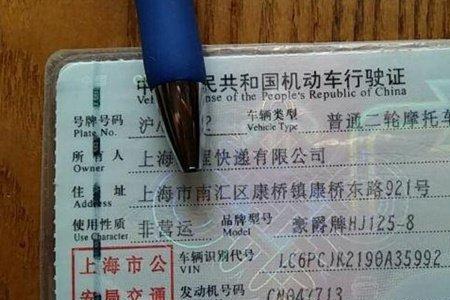 中 民共和国机动车行驶证
Vel ense of the People's Republic of China
号牌号码 沪 2 车辆类型 普通二轮摩托车
Plate No. Vehicle Type
所有人 上海 屋快递有限公司
Owner
住址 上海市南汇区康桥镇康桥东路921号
Address
使用性质 非营运 品牌型号 豪爵牌HJ125-8
Use Character Model
上海市公 车辆识别代号 LC6PCJK2190A35992
VIN
安局交通 发动机号码